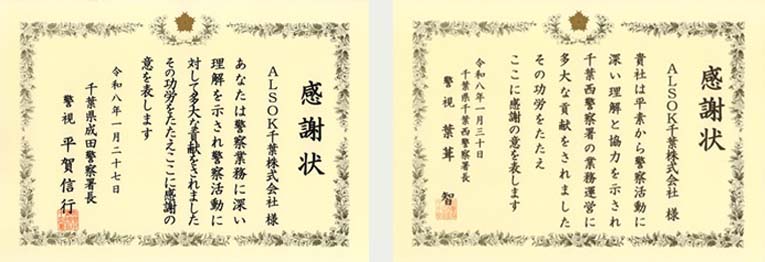 感謝状
ALSOK千葉株式会社 様
あなたは警察業務に深い
理解を示され警察活動に
対して多大な貢献をされました
その功労をたたえここに感謝の
意を表します
令和八年一月二十七日
千葉県成田警察署長
警視 平賀信行
感謝状
ALSOK千葉株式会社 様
貴社は平素から警察活動に
深い理解と協力を示され
千葉西警察署の業務運営に
多大な貢献をされました
その功労をたたえ
ここに感謝の意を表します
令和八年一月三十日
千葉県千葉西警察署長
警視 葉葺 智